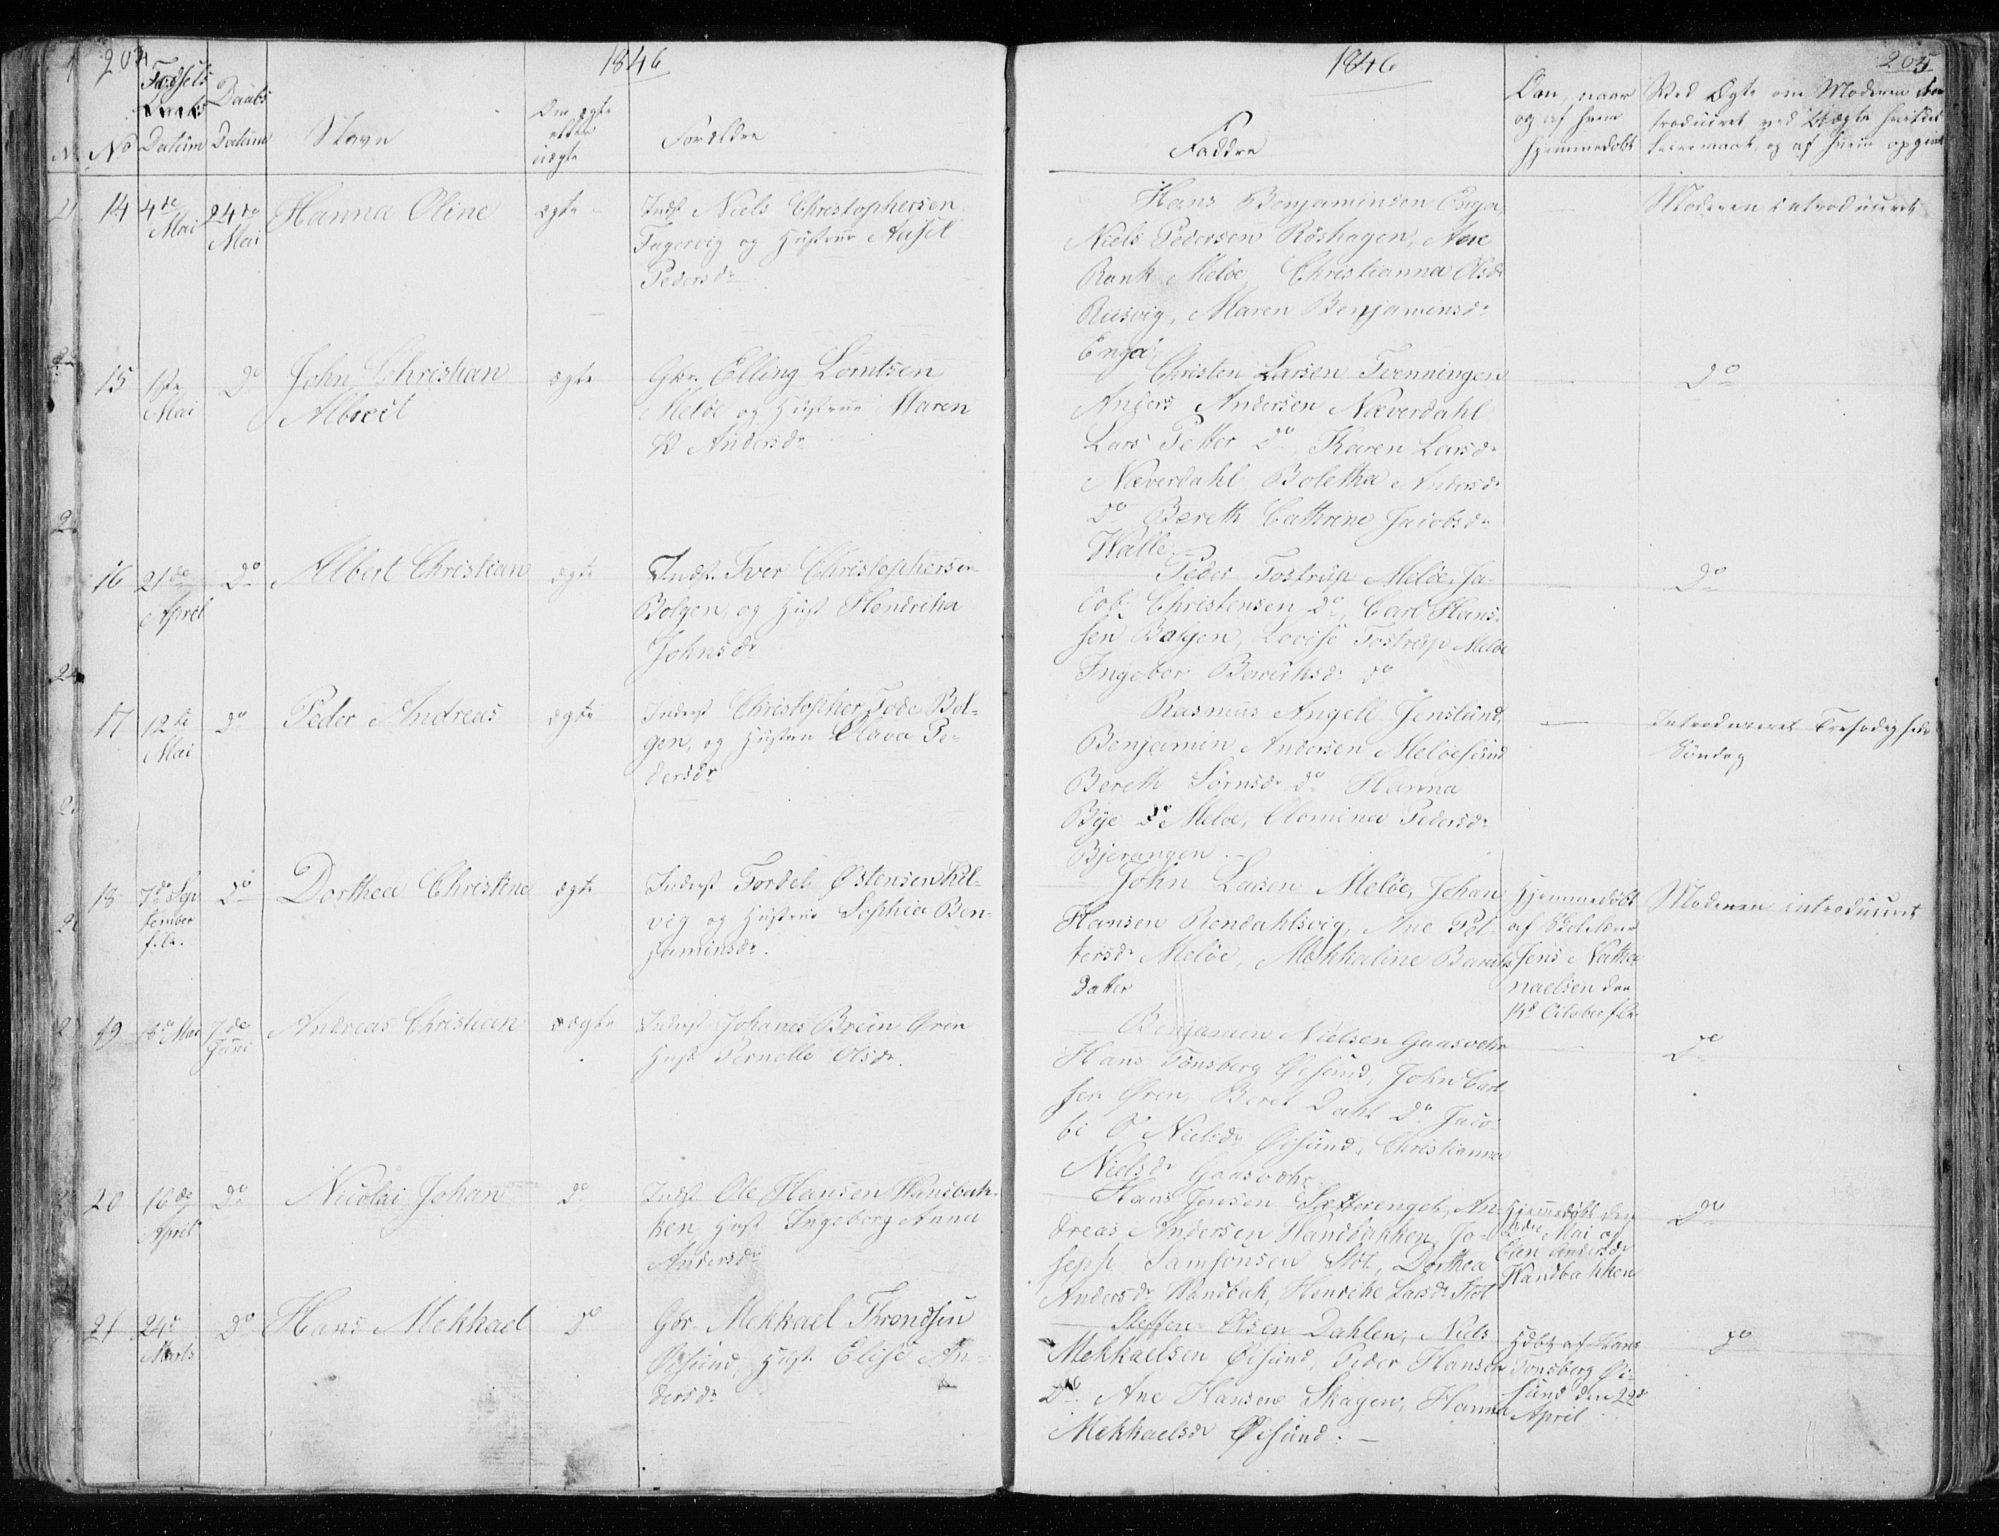 204
1846
No
Fødsels
Datum
Daabs
Datum
Navn
Om ægte
eller
uægte
Forældre
14
4de
Mai
24de
Mai
Hanna Oline
ægte
Inds Niels Christophersen
Fagervig og Hustrue
Pedersdr
15
Mai
Do
John Christian
Albrect
ægte
Gbr. Elling Lorntsen
Meløe og Hustrue Maren
Andersdr
16
21de
April
Do
Albert Christian
ægte
Inds. Iver Christophersen
Bolgen, og Hust Hendrika
Johnsdr
17
12te
Mai
Do
Peder Andreas
ægte
Inderst Christopher Tode Bol-
gen, og Hustru Olava Pe-
dersdr
18
7de Sep
tember
f. A.
Do
Dorthea Christine
ægte
Inderst Tordel Østensen
vig og Hustrue Sophia Ben-
jaminsdr.
19
7de
Juni
Andreas Christian
ægte
Inderst Johanes Brein Ören
Hust Pernelle Olsdr.
20
16de
April
Do
Nicolai Johan
Do
Inds Ole Hansen Handbak-
ken, Hust Ingeborg Anna
Andersdr
21
24de
Marts
Do
Hans Mekkael
Do
Gbr. Mekkael Throndsen
Øisund, Hust. Elise An-
dersdr
1846
205
Faddre
og af hvem
hjemmedøbt
Hans Benjaminsen Enga,
Niels Pedersen Röshagen, Ane
Rank Meløe Christianna Olsdr
Riisvig, Maren Benjaminsdr
Enga
Moderen introduceret
Christen Larsen Tvenningen
Anders Andersen Næverdahl
Lars Petter Do, Karen Larsdr
Næverdahl Boletha Andersdr
Do Bereth Cathrine Jacobsdr
Halle
Do
Peder Tostrup Meløe, Ja-
cob Christensen Do, Carl Hans-
sen Bolgen, Lovise Tostrup Meløe
Ingebor Do
Do
Rasmus Angell Jenslund,
Benjamin Andersen Meløesund
Bereth Sörnsdr Do Hanna
Bye Do Meløe, Olomina Pedersdr
Bjerangen
Introduceret
Söndag
John Larsen Meløe, Johan
Hansen Rendahlsvig, Ane Pet-
tersdr Meløe, Mekkaline
Datter
Hjemmedøbt
af Skolelær
Jens Natha
naelsen den
14de October f. A.
Moderen introduceret
Benjamin Nielsen Gaasvær
Hans Tönsberg Øisund, John Carl
sen Ören, Beret Dahl Do Jaco
bi O Nielsdr Øisund, Christianna
Nielsdr Gaasvær
Do
Hans Jensen Sætterenget, An-
dreas Andersen Handbakken, Jo-
seph Samsonsen Stöt, Dorthea
Andersdr Handbak, Henrike Larsdr Stöt
Hjemmedøbt den
Mai af
Elen Andersdr
Handbakken
Do
Steffen Olsen Dahlen, Niels
Mekkaelsen Øisund, Peder Hansen
Do Ane Hansen Skagen, Hanna
Mekkaelsdr Øisund.
Hdøbt af Hans
Tönsberg Øi-
sund den 22de
April
Do